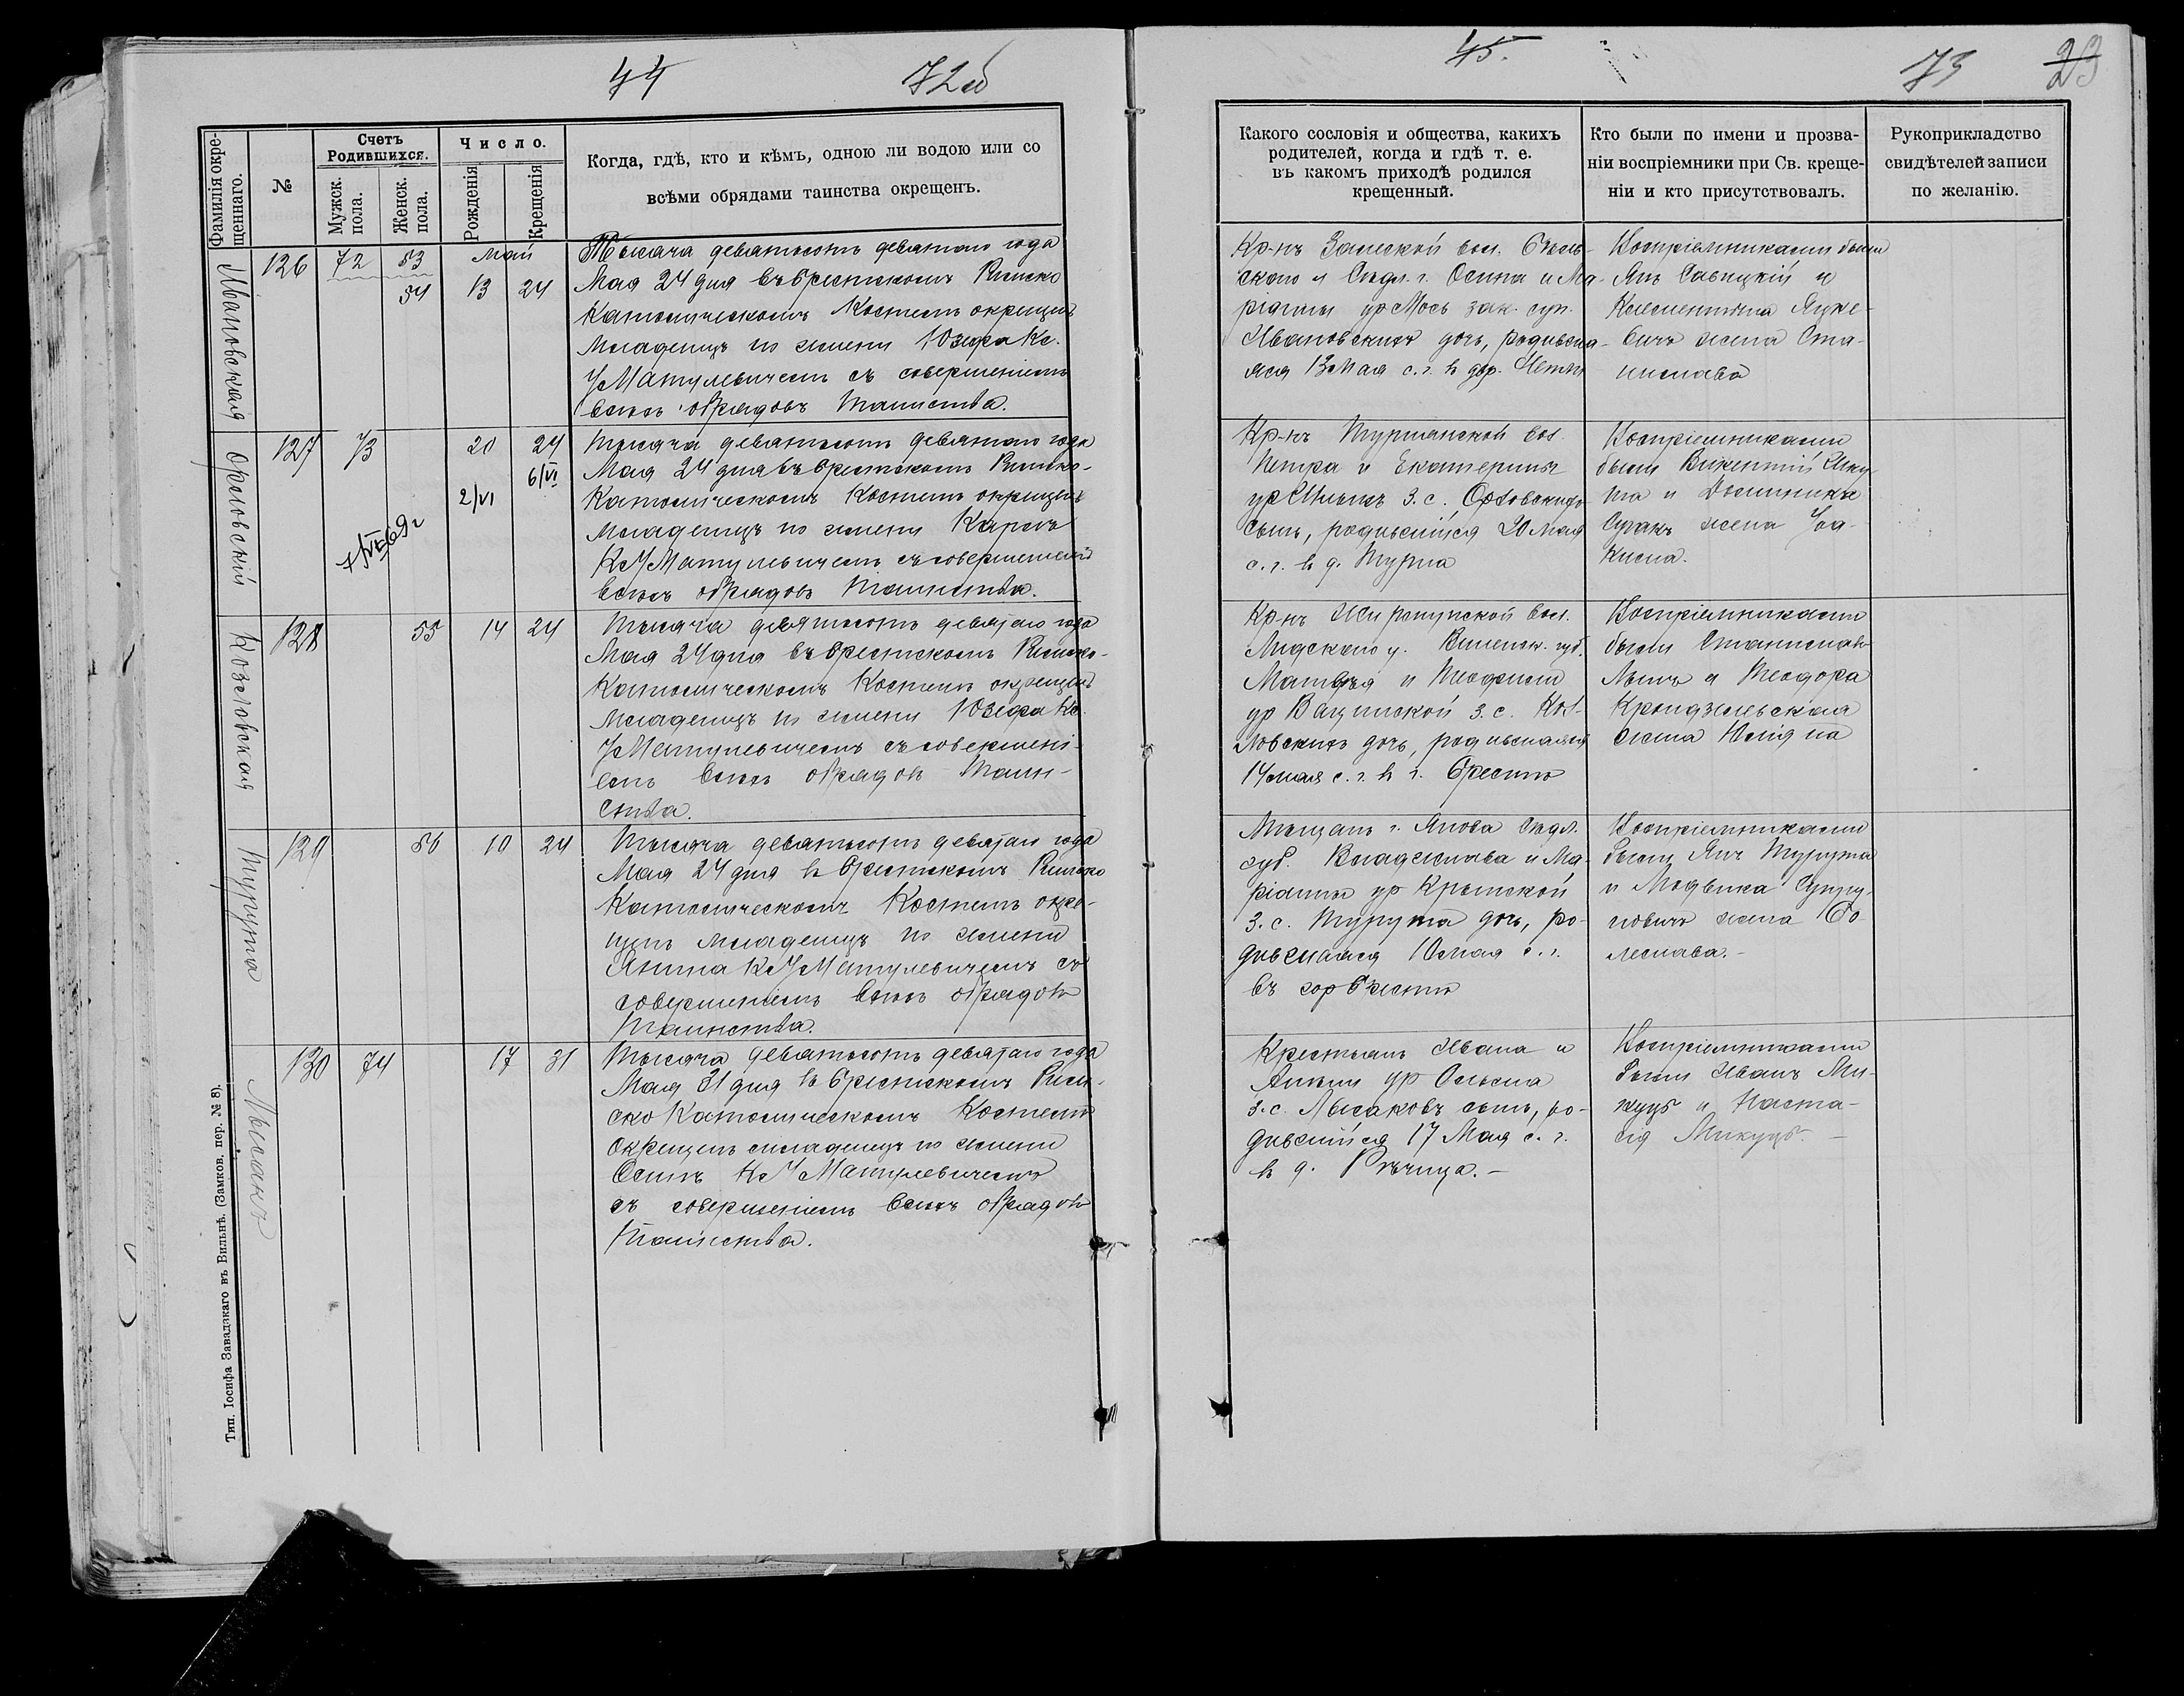 44 72об
Фамилія окре-
щеннаго.
№
Счетъ
Родившихся.
Мужск.
пола.
Женск.
пола.
Число.
Рожденія
Крещенія
Когда, гдѣ, кто и кѣмъ, одною ли водою или со
всѣми обрядами таинства окрещенъ.
Ивановская
126 72 53
54
май
13 24
Тысяча девятьсотъ девятаго года
Мая 24 дня въ Брестскомъ Римско
Католическомъ Костелѣ окрещенъ
младенецъ по имени Юзефа Кс.
У Матулевичемъ съ совершеніемъ
всѣхъ обрядовъ Таинства.
Орловскій
127 73 20 24
2/VI 6/VI
7/VI-69г
Тысяча девятьсотъ девятаго года
Мая 24 дня въ Брестскомъ Римско-
Католическомъ Костелѣ окрещенъ
младенецъ по имени Кароль
К У Матулевичемъ съ совершеніемъ
всѣхъ обрядовъ Таинства.
Козловская
128 55 14 24
Тысяча девятьсотъ девятаго года
Мая 24 дня въ Брестскомъ Римско-
Католическомъ Костелѣ окрещенъ
младенецъ по имени Юзефа Кс.
У Матулевичемъ съ совершені-
емъ всѣхъ обрядовъ Таин-
ства.
Турута
129 56 10 24
Тысяча девятьсотъ девятаго года
Мая 24 дня въ Брестскомъ Римско
Католическомъ Костелѣ окре-
щенъ младенецъ по имени
Янина К У Матулевичемъ съ
совершеніемъ всѣхъ обрядовъ
Таинства.
Лысакъ
130 74 17 31
Тысяча девятьсотъ девятаго года
Мая 31 дня въ Брестскомъ Рим-
ско Католическомъ Костелѣ
окрещенъ младенецъ по имени
Осипъ К У Матулевичемъ
съ совершеніемъ всѣхъ обрядовъ
Таинства.
Тип. Іосифа Завадзкаго въ Вильнѣ. (Замков. пер. № 8).
45. 73 23
Какого сословія и общества, какихъ
родителей, когда и гдѣ т. е.
въ какомъ приходѣ родился
крещенный.
Кто были по имени и прозва-
ніи воспріемники при Св. креще-
ніи и кто присутствовалъ.
Рукоприкладство
свидѣтелей записи
по желанію.
Кр-нъ вол. Бѣль-
скаго у Сѣдл. г. Осипа и Ма-
ріанны ур Мось зак. суп.
Ивановскихъ дочь, родивша-
яся 13 Мая с. г. въ дер.
Воспріемниками были
Янъ Савицкій и
Клементина Яцке-
вичъ жена Ста-
нислава
Кр-нъ Турнянской вол.
Петра и Екатерины
ур З. с. Орловскихъ
сынъ, родившійся 20 Мая
с. г. въ д. Турна
Воспріемниками
были Викентій
и Доминика
жена Іоа-
кима.
Кр-нъ вол.
Лидскаго у. Виленск. губ.
Матвѣя и Теофили
ур Вацинской З. с. Коз-
ловскихъ дочь, родившаяся
14 мая с. г. въ г. Брестѣ
Воспріемниками
были Станиславъ
и Теодора
жена
Мѣщанъ г. Янова Сѣдл.
губ. Владислава и Ма-
ріанны ур Крынской
З. с. Турута дочь, ро-
дившаяся 10 мая с. г.
въ гор Брестѣ
Воспріемниками
были Янъ Турута
и Людвика
жена Бо
леслава.-
Крестьянъ Ивана и
Анны ур
З. с. Лысаковъ сынъ, ро-
дившійся 17 Мая с. г.
въ д. Рѣчица.-
Воспріемниками
были Иванъ Ми-
куцъ и Наста-
сія Микуцъ.-